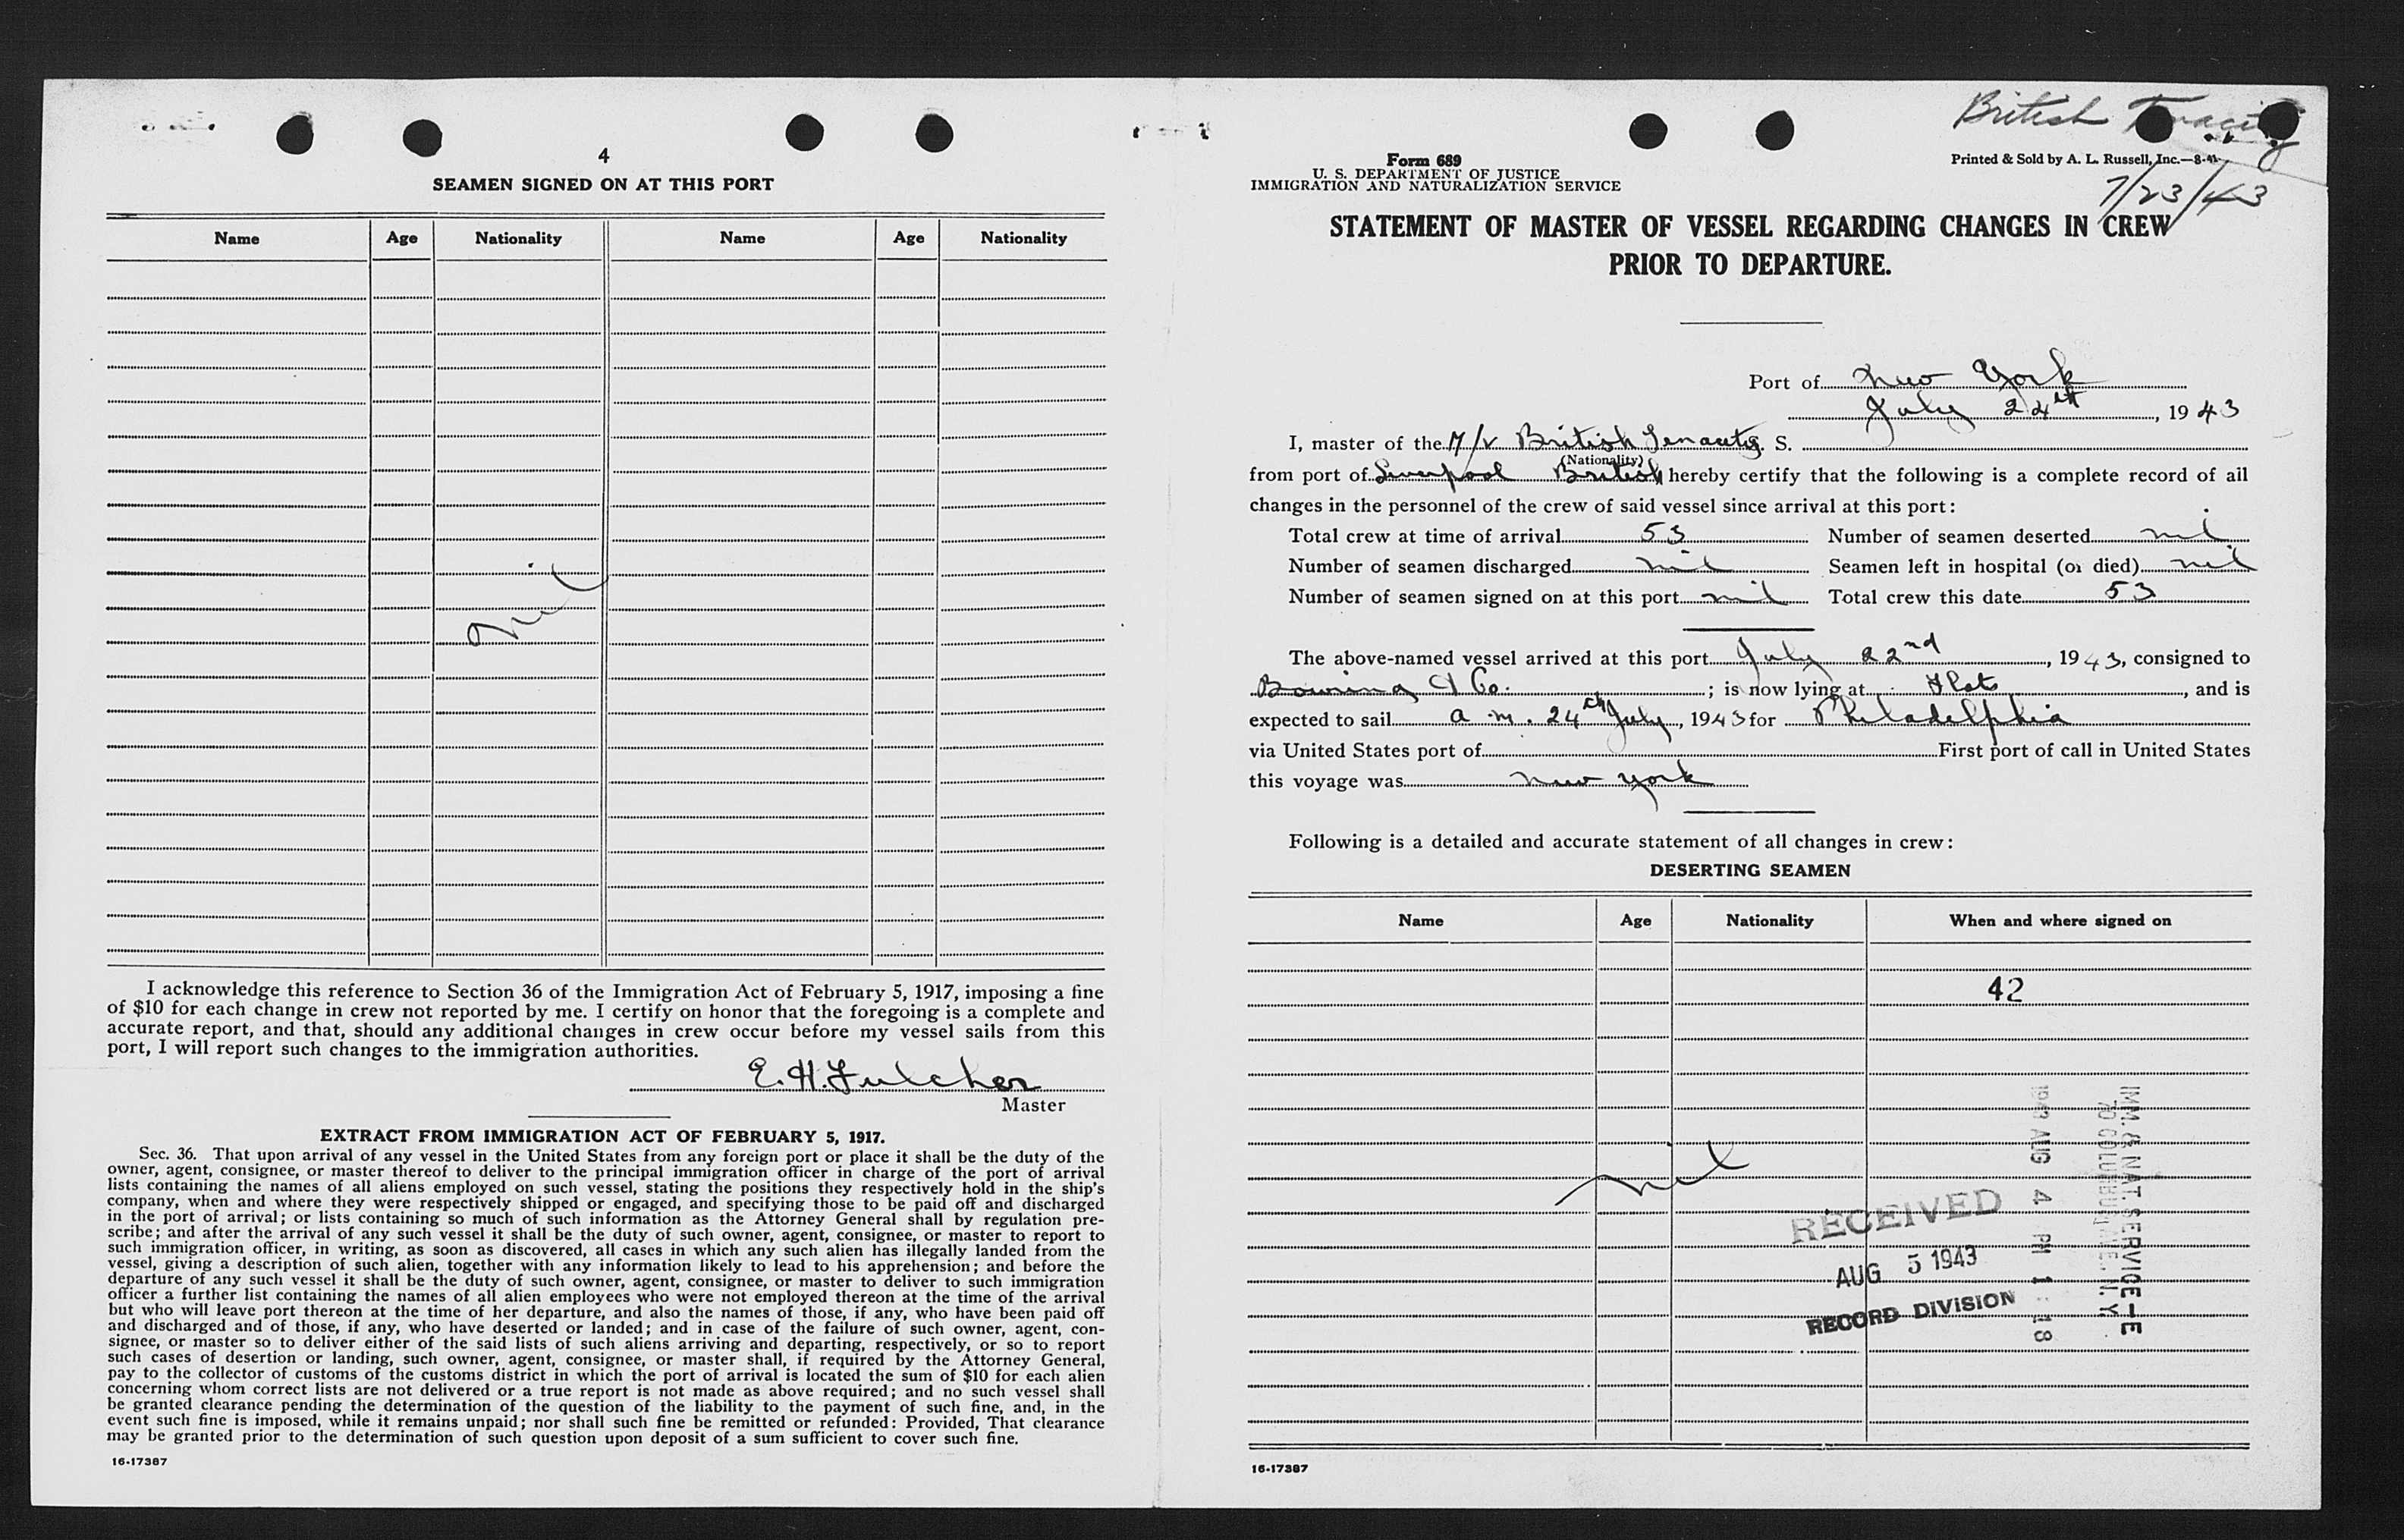 4
SEAMEN SIGNED ON AT THIS PORT
Name Age Nationality Name Age Nationality
nil
I acknowledge this reference to Section 36 of the Immigration Act of February 5, 1917, imposing a fine
of $10 for each change in crew not reported by me. I certify on honor that the foregoing is a complete and
accurate report, and that, should any additional changes in crew occur before my vessel sails from this
port, I will report such changes to the immigration authorities.
E. H. Fulcher
Master
EXTRACT FROM IMMIGRATION ACT OF FEBRUARY 5, 1917.
Sec. 36. That upon arrival of any vessel in the United States from any foreign port or place it shall be the duty of the
owner, agent, consignee, or master thereof to deliver to the principal immigration officer in charge of the port of arrival
lists containing the names of all aliens employed on such vessel, stating the positions they respectively hold in the ship's
company, when and where they were respectively shipped or engaged, and specifying those to be paid off and discharged
in the port of arrival; or lists containing so much of such information as the Attorney General shall by regulation pre-
scribe; and after the arrival of any such vessel it shall be the duty of such owner, agent, consignee, or master to report to
such immigration officer, in writing, as soon as discovered, all cases in which any such alien has illegally landed from the
vessel, giving a description of such alien, together with any information likely to lead to his apprehension; and before the
departure of any such vessel it shall be the duty of such owner, agent, consignee, or master to deliver to such immigration
officer a further list containing the names of all alien employees who were not employed thereon at the time of the arrival
but who will leave port thereon at the time of her departure, and also the names of those, if any, who have been paid off
and discharged and of those, if any, who have deserted or landed; and in case of the failure of such owner, agent, con-
signee, or master so to deliver either of the said lists of such aliens arriving and departing, respectively, or so to report
such cases of desertion or landing, such owner, agent, consignee, or master shall, if required by the Attorney General,
pay to the collector of customs of the customs district in which the port of arrival is located the sum of $10 for each alien
concerning whom correct lists are not delivered or a true report is not made as above required; and no such vessel shall
be granted clearance pending the determination of the question of the liability to the payment of such fine, and, in the
event such fine is imposed, while it remains unpaid; nor shall such fine be remitted or refunded: Provided, That clearance
may be granted prior to the determination of such question upon deposit of a sum sufficient to cover such fine.
16-17387
British Tenacity
Form 689
Printed & Sold by A. L. Russell, Inc.—8-41
U. S. DEPARTMENT OF JUSTICE
IMMIGRATION AND NATURALIZATION SERVICE
7/23/43
STATEMENT OF MASTER OF VESSEL REGARDING CHANGES IN CREW
PRIOR TO DEPARTURE.
Port of New York
July 24th, 1943
I, master of the M/V British Tenacity S. S.
(Nationality)
from port of Liverpool British hereby certify that the following is a complete record of all
changes in the personnel of the crew of said vessel since arrival at this port:
Total crew at time of arrival 53 Number of seamen deserted nil
Number of seamen discharged nil Seamen left in hospital (or died) nil
Number of seamen signed on at this port nil Total crew this date 53
The above-named vessel arrived at this port July 22nd, 1943, consigned to
Bowring & Co. ; is now lying at Flats, and is
expected to sail a.m. 24th July, 1943 for Philadelphia
via United States port of First port of call in United States
this voyage was New York
Following is a detailed and accurate statement of all changes in crew:
DESERTING SEAMEN
Name Age Nationality When and where signed on
42
nil
RECEIVED
AUG 5 1943
RECORD DIVISION
IMM. & NAT. SERVICE—E
70 COLUMBUS AVE. N.Y.
1943 AUG 4 PM 1:18
16-17387